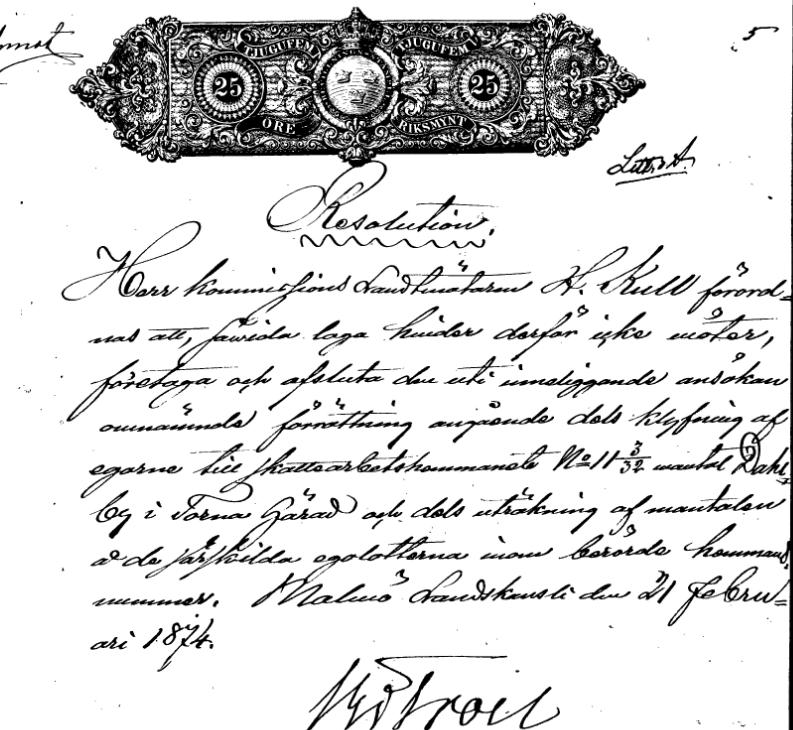 5
TJUGUFEM TJUGUFEM
25 25
ÖRE RIKSMYNT
Litt. A.
Resolution.
Herr Kommissions Landtmätaren H. Kull förord-
nas att, såvida laga hinder derför icke möter,
företaga och afsluta den uti inneliggande ansökan
omnämnde förrättning angående dels klyfning af
egorne till skattearbetshemmanet No 11 3/32 mantal Dahl-
by i Torna Härad och dels uträkning af mantalen
å de särskilda egolotterna inom berörde hemmans
nummer. Malmö Landskansli den 21 Febru-
ari 1874.